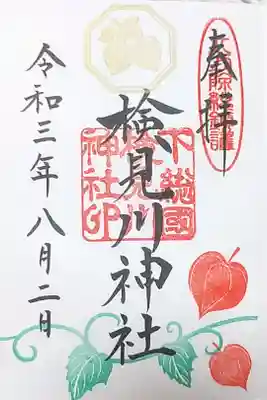 奉拝
検見川神社
下総國
神社印
令和三年八月二日